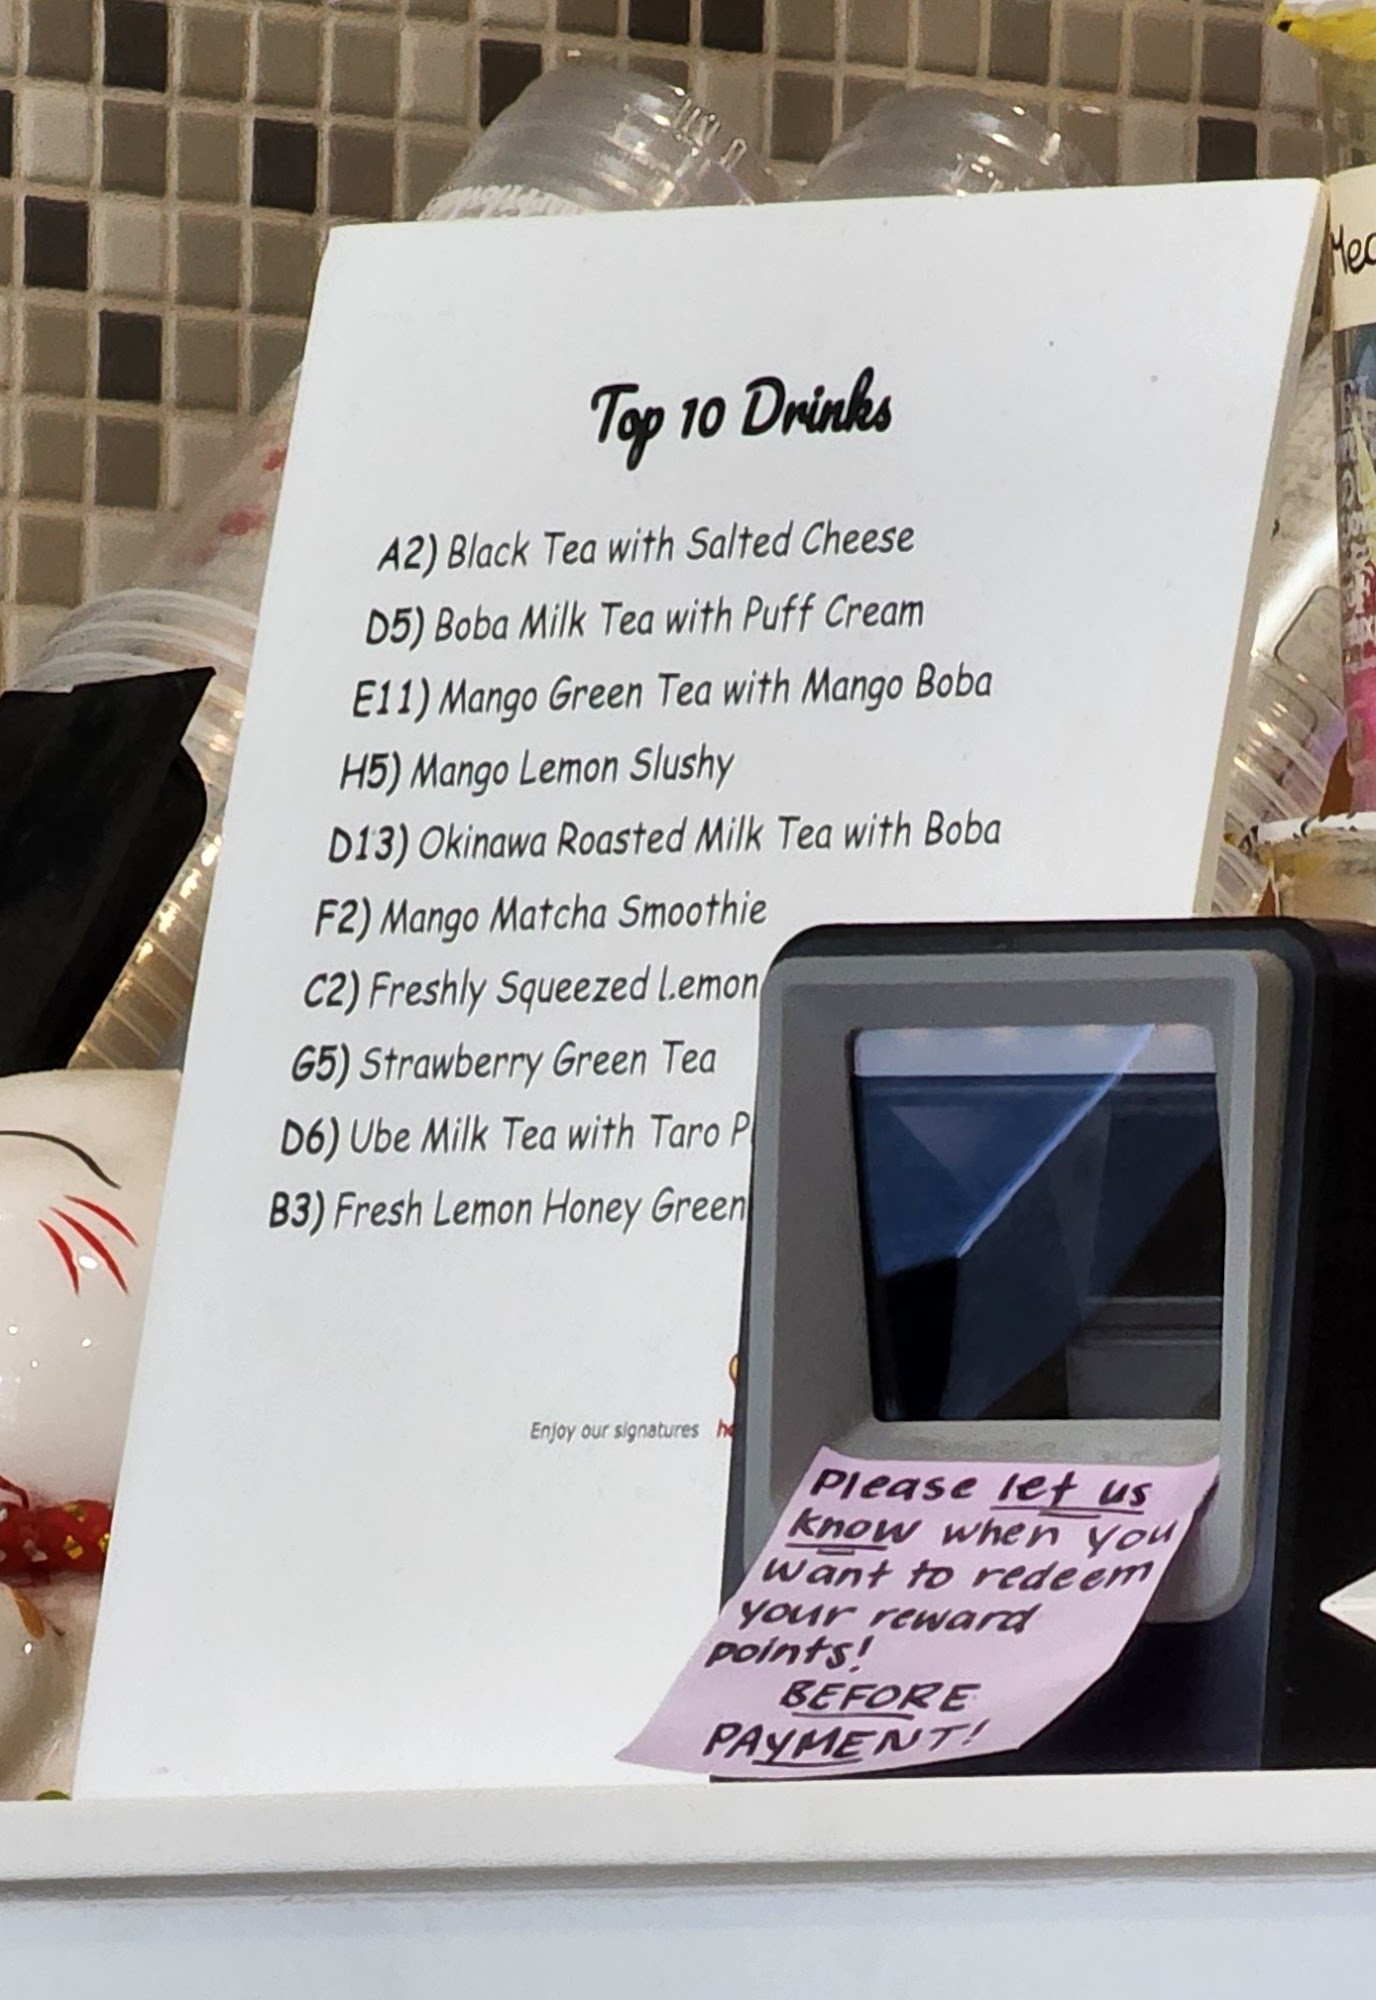 Top 10 Drinks
A2) Black Tea with Salted Cheese
D5) Boba Milk Tea with Puff Cream
E11) Mango Green Tea with Mango Boba
H5) Mango Lemon Slushy
D13) Okinawa Roasted Milk Tea with Boba
F2) Mango Matcha Smoothie
C2) Freshly Squeezed Lemon
G5) Strawberry Green Tea
D6) Ube Milk Tea with Taro
B3) Fresh Lemon Honey Green
Enjoy our signatures
Please let us
know when you
want to redeem
your reward
points!
BEFORE
PAYMENT!